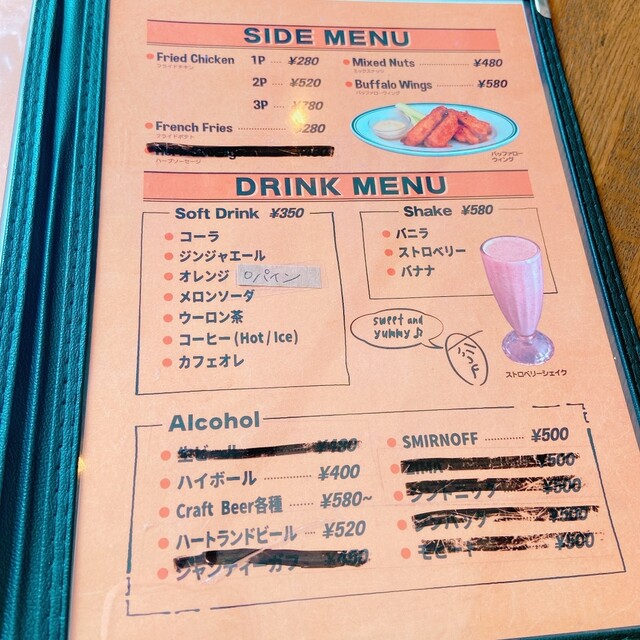 SIDE MENU
Fried Chicken 1P ···· ¥280
フライドチキン
2P ···· ¥520
3P ¥780
French Fries ···················· ¥280
フライドポテト
ハーブソーセージ
Mixed Nuts ········ ¥480
ミックスナッツ
Buffalo Wings ····· ¥580
バッファローウィング
バッファロー
ウィング
DRINK MENU
Soft Drink ¥350
コーラ
ジンジャエール
オレンジ ○パイン
メロンソーダ
ウーロン茶
コーヒー(Hot/Ice)
カフェオレ
Shake ¥580
バニラ
ストロベリー
バナナ
sweet and
yummy♪
ストロベリーシェイク
Alcohol
生ビール ¥480
ハイボール ·········· ¥400
Craft Beer各種 ······· ¥580~
ハートランドビール ···· ¥520
シャンディーガフ
SMIRNOFF ············ ¥500
ZIMA ¥500
ジントニック ¥500
¥500
モヒート ¥500